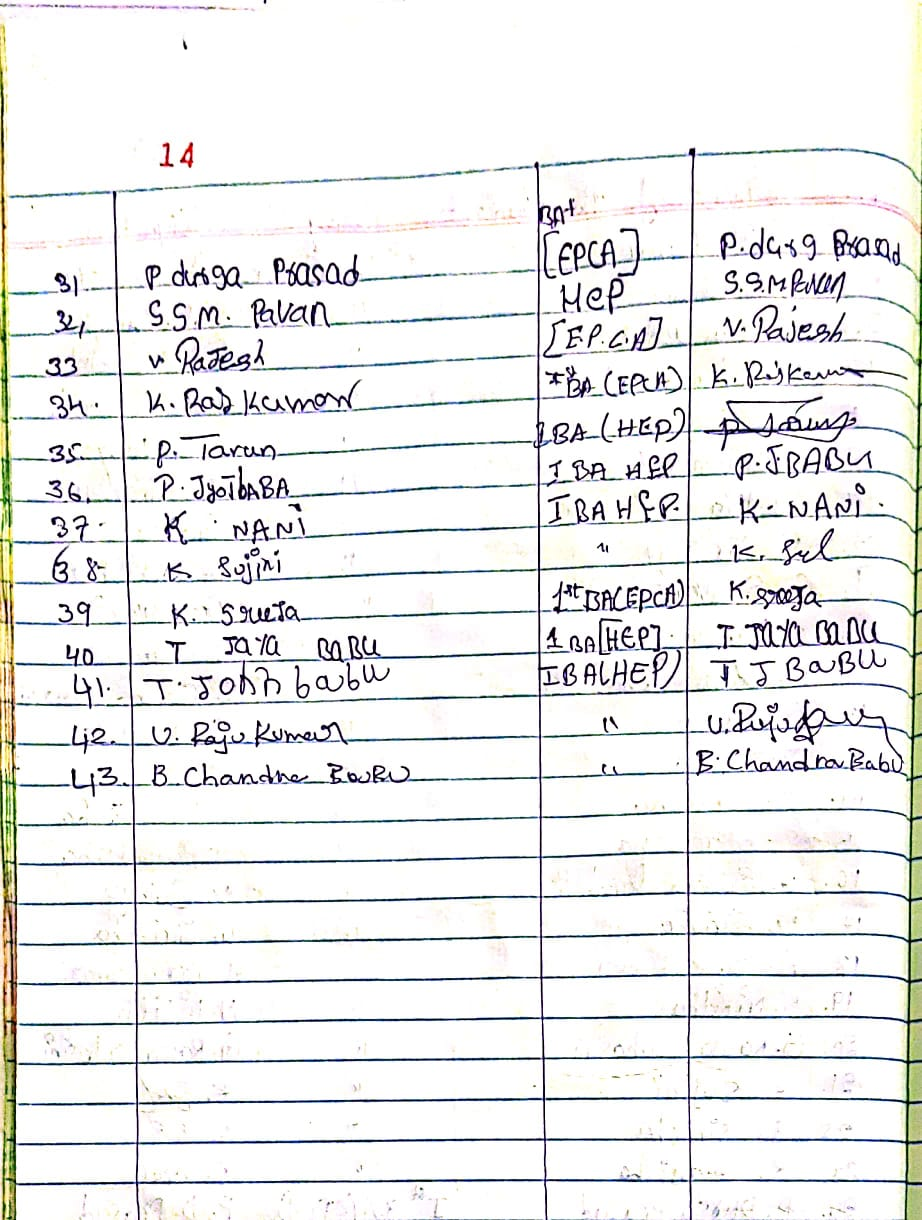 14
BA+
31 P. durga Prasad [EPCA] P. durga Prasad
32, S.S.M. Pavan HEP S.S.M Pavan
33 v. RaJesh [E.P.C.A] v. Rajesh
34. K. Raj Kumar BA (EPCA) K. RajKumar
35. P. Tarun IBA (HEP)
36. P. JyoTbABA I BA HEP P. JBABU
37. K NANi I BA HEP. K. NANi.
38 K Sujini " K. Suj
39 K. SreeJa 1st BA(EPCA) K. sreeJa
40 T JaYa BABU 1 BA [HEP] T. JaYa BABU
41. T. John babu I BA(HEP) T J BaBU
42. U. Raju Kumar " U. Raju
43. B. Chandra BaBU " B. Chandra Babu